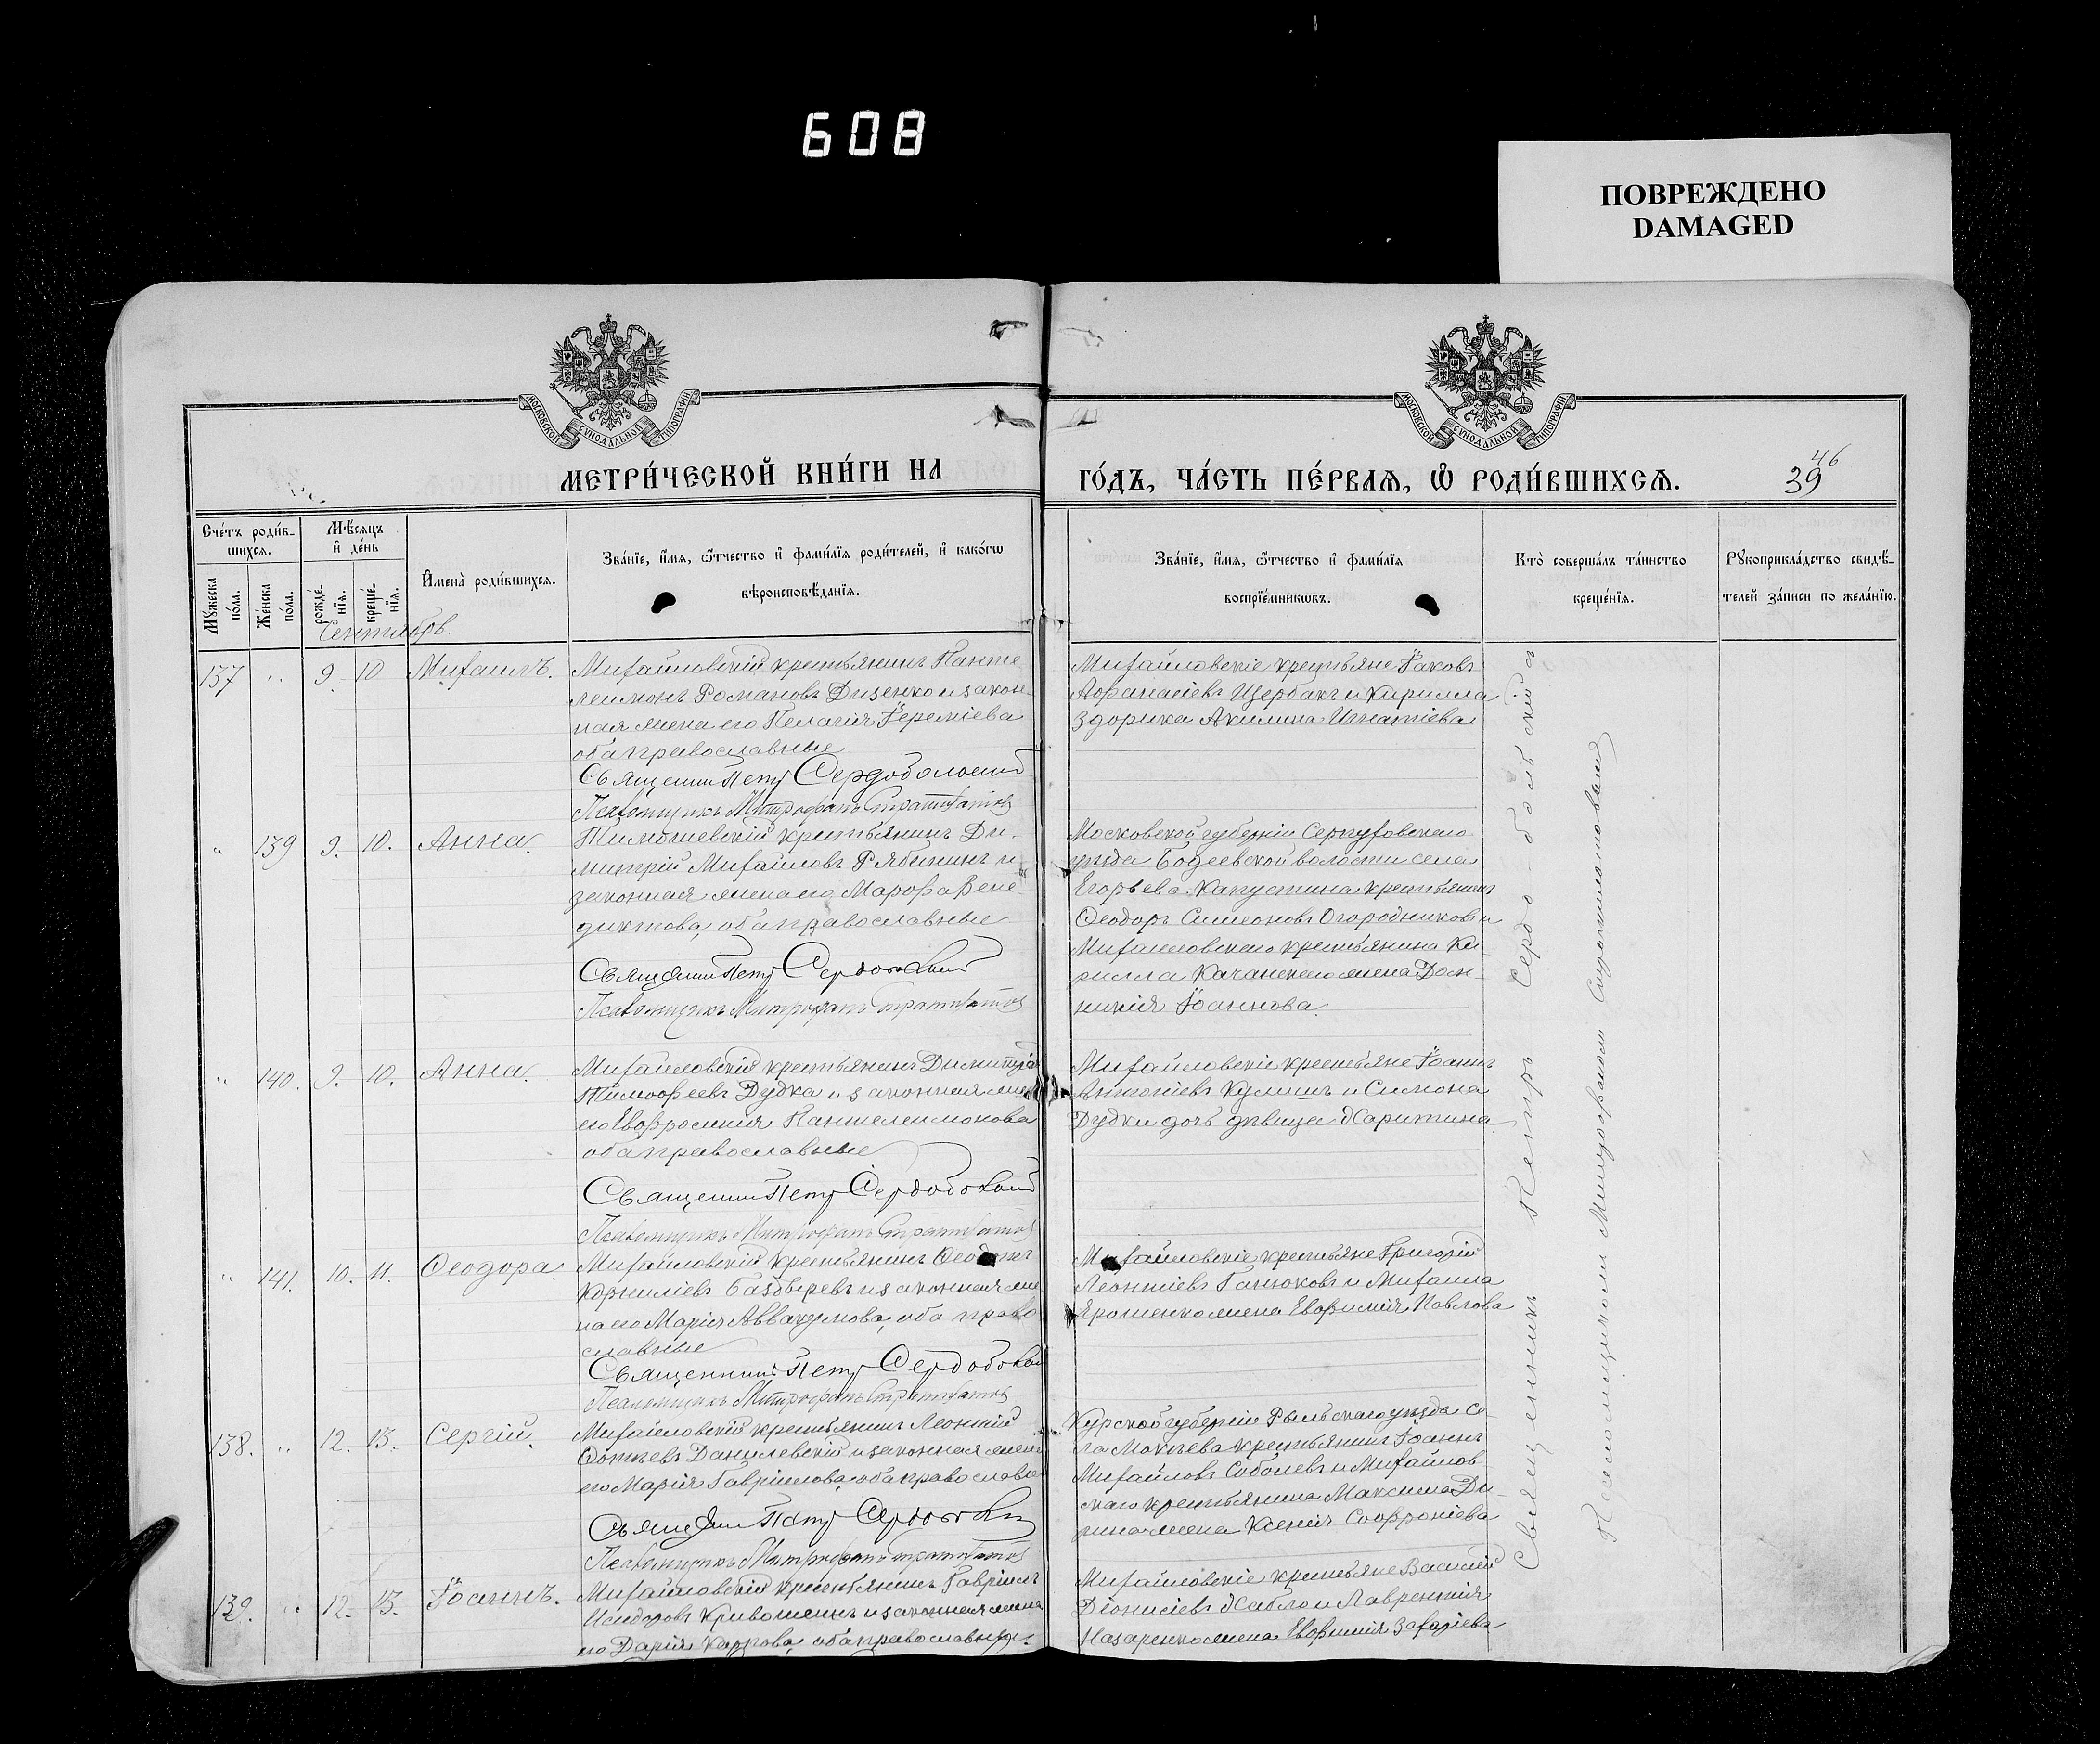 608
ПОВРЕЖДЕНО
DAMAGED
МОСКОВСКОЙ СУНОДАЛЬНОЙ ТИПОГРАФІИ
МОСКОВСКОЙ СУНОДАЛЬНОЙ ТИПОГРАФІИ
МЕТРИ́ЧЕСКОЙ КНИ́ГИ НА
ГО́ДЪ, ЧА́СТЬ ПЕ́РВАѦ, Ѽ РОДИ́ВШИХСѦ.
46
39
Сче́тъ роди́в-
шихся.
Мѣ́сяцъ
и҆ де́нь
Мꙋ́жеска
по́ла.
Же́нска
по́ла.
рожде́-
нїя.
креще́-
нїя.
И҆мена̀ роди́вшихся.
Зва́нїе, и҆́мя, ѻ҆́тчество и҆ фами́лїя роди́телей, и҆ како́гѡ
вѣроисповѣ́данїя.
Зва́нїе, и҆́мя, ѻ҆́тчество и҆ фами́лїя
воспрїе́мникѡвъ.
Кто̀ соверша́лъ та́инство
креще́нїя.
Рꙋкоприкла́дство свидѣ́-
телей за́писи по жела́нїю.
Сентябрь.
137 " 9. 10 Михаилъ.
Михайловскій крестьянинъ Панте-
леимонъ Романовъ Диденко и закон-
ная жена его Пелагія Іереміева
оба православные
Священникъ Петръ Сердобольскій
Псаломщикъ Митрофанъ
Михайловскіе крестьяне Іаковъ
Афанасіевъ Щербакъ и Кирилла
Здорика Акилина Игнатіева
" 139 9. 10. Анна.
крестьянинъ Ди-
митрій Михайловъ Рябининъ и
законная жена его Марфа Вене-
диктова, оба православные
Священникъ Петръ Сердобольскій
Псаломщикъ Митрофанъ
Московской губерніи Серпуховскаго
уѣзда волости села
Егорьева крестьянинъ
Ѳеодоръ Симеоновъ Огородниковъ и
Михайловскаго крестьянина Ки-
рилла жена Дом-
никія Іоаннова.
" 140. 9. 10. Анна.
Михайловскій крестьянинъ Димитрій
Тимоѳеевъ Дудка и законная жена
его Евфросинія Пантелеимонова
оба православные
Священникъ Петръ Сердобольскій
Псаломщикъ Митрофанъ
Михайловскіе крестьяне Іоаннъ
Антоніевъ Кулишъ и Симона
Дудки дочь дѣвица Харитина
" 141. 10. 11. Ѳеодора.
Михайловскій крестьянинъ
Корниліевъ и законная же-
на его Марія Аввакумова, оба право-
славные
Священникъ Петръ Сердобольскій
Псаломщикъ Митрофанъ
Михайловскіе крестьяне Григорій
Леонтіевъ Ганюковъ и Михаила
Ярошенко жена Евфимія Павлова
138. " 12. 13. Сергій.
Михайловскій крестьянинъ Леонтій
Данилевскій и законная жена
его Марія Гавріилова, оба православные
Священникъ Петръ Сердобольскій
Псаломщикъ Митрофанъ
Курской губерніи Рыльскаго уѣзда се-
ла крестьянинъ Іоаннъ
Михайловъ Соболевъ и Михайлов-
скаго крестьянина Максима
жена Ксенія Софроніева
139. " 12. 13. Іоаннъ.
Михайловскій крестьянинъ Гавріилъ
Исидоровъ Кривошеинъ и законная жена
его Дарія Карпова, оба православные.
Михайловскіе крестьяне Василій
Діонисіевъ и Лаврентія
Назаренко жена Евфимія Захаріева
Священникъ Петръ Сердобольскій
Псаломщикъ Митрофанъ